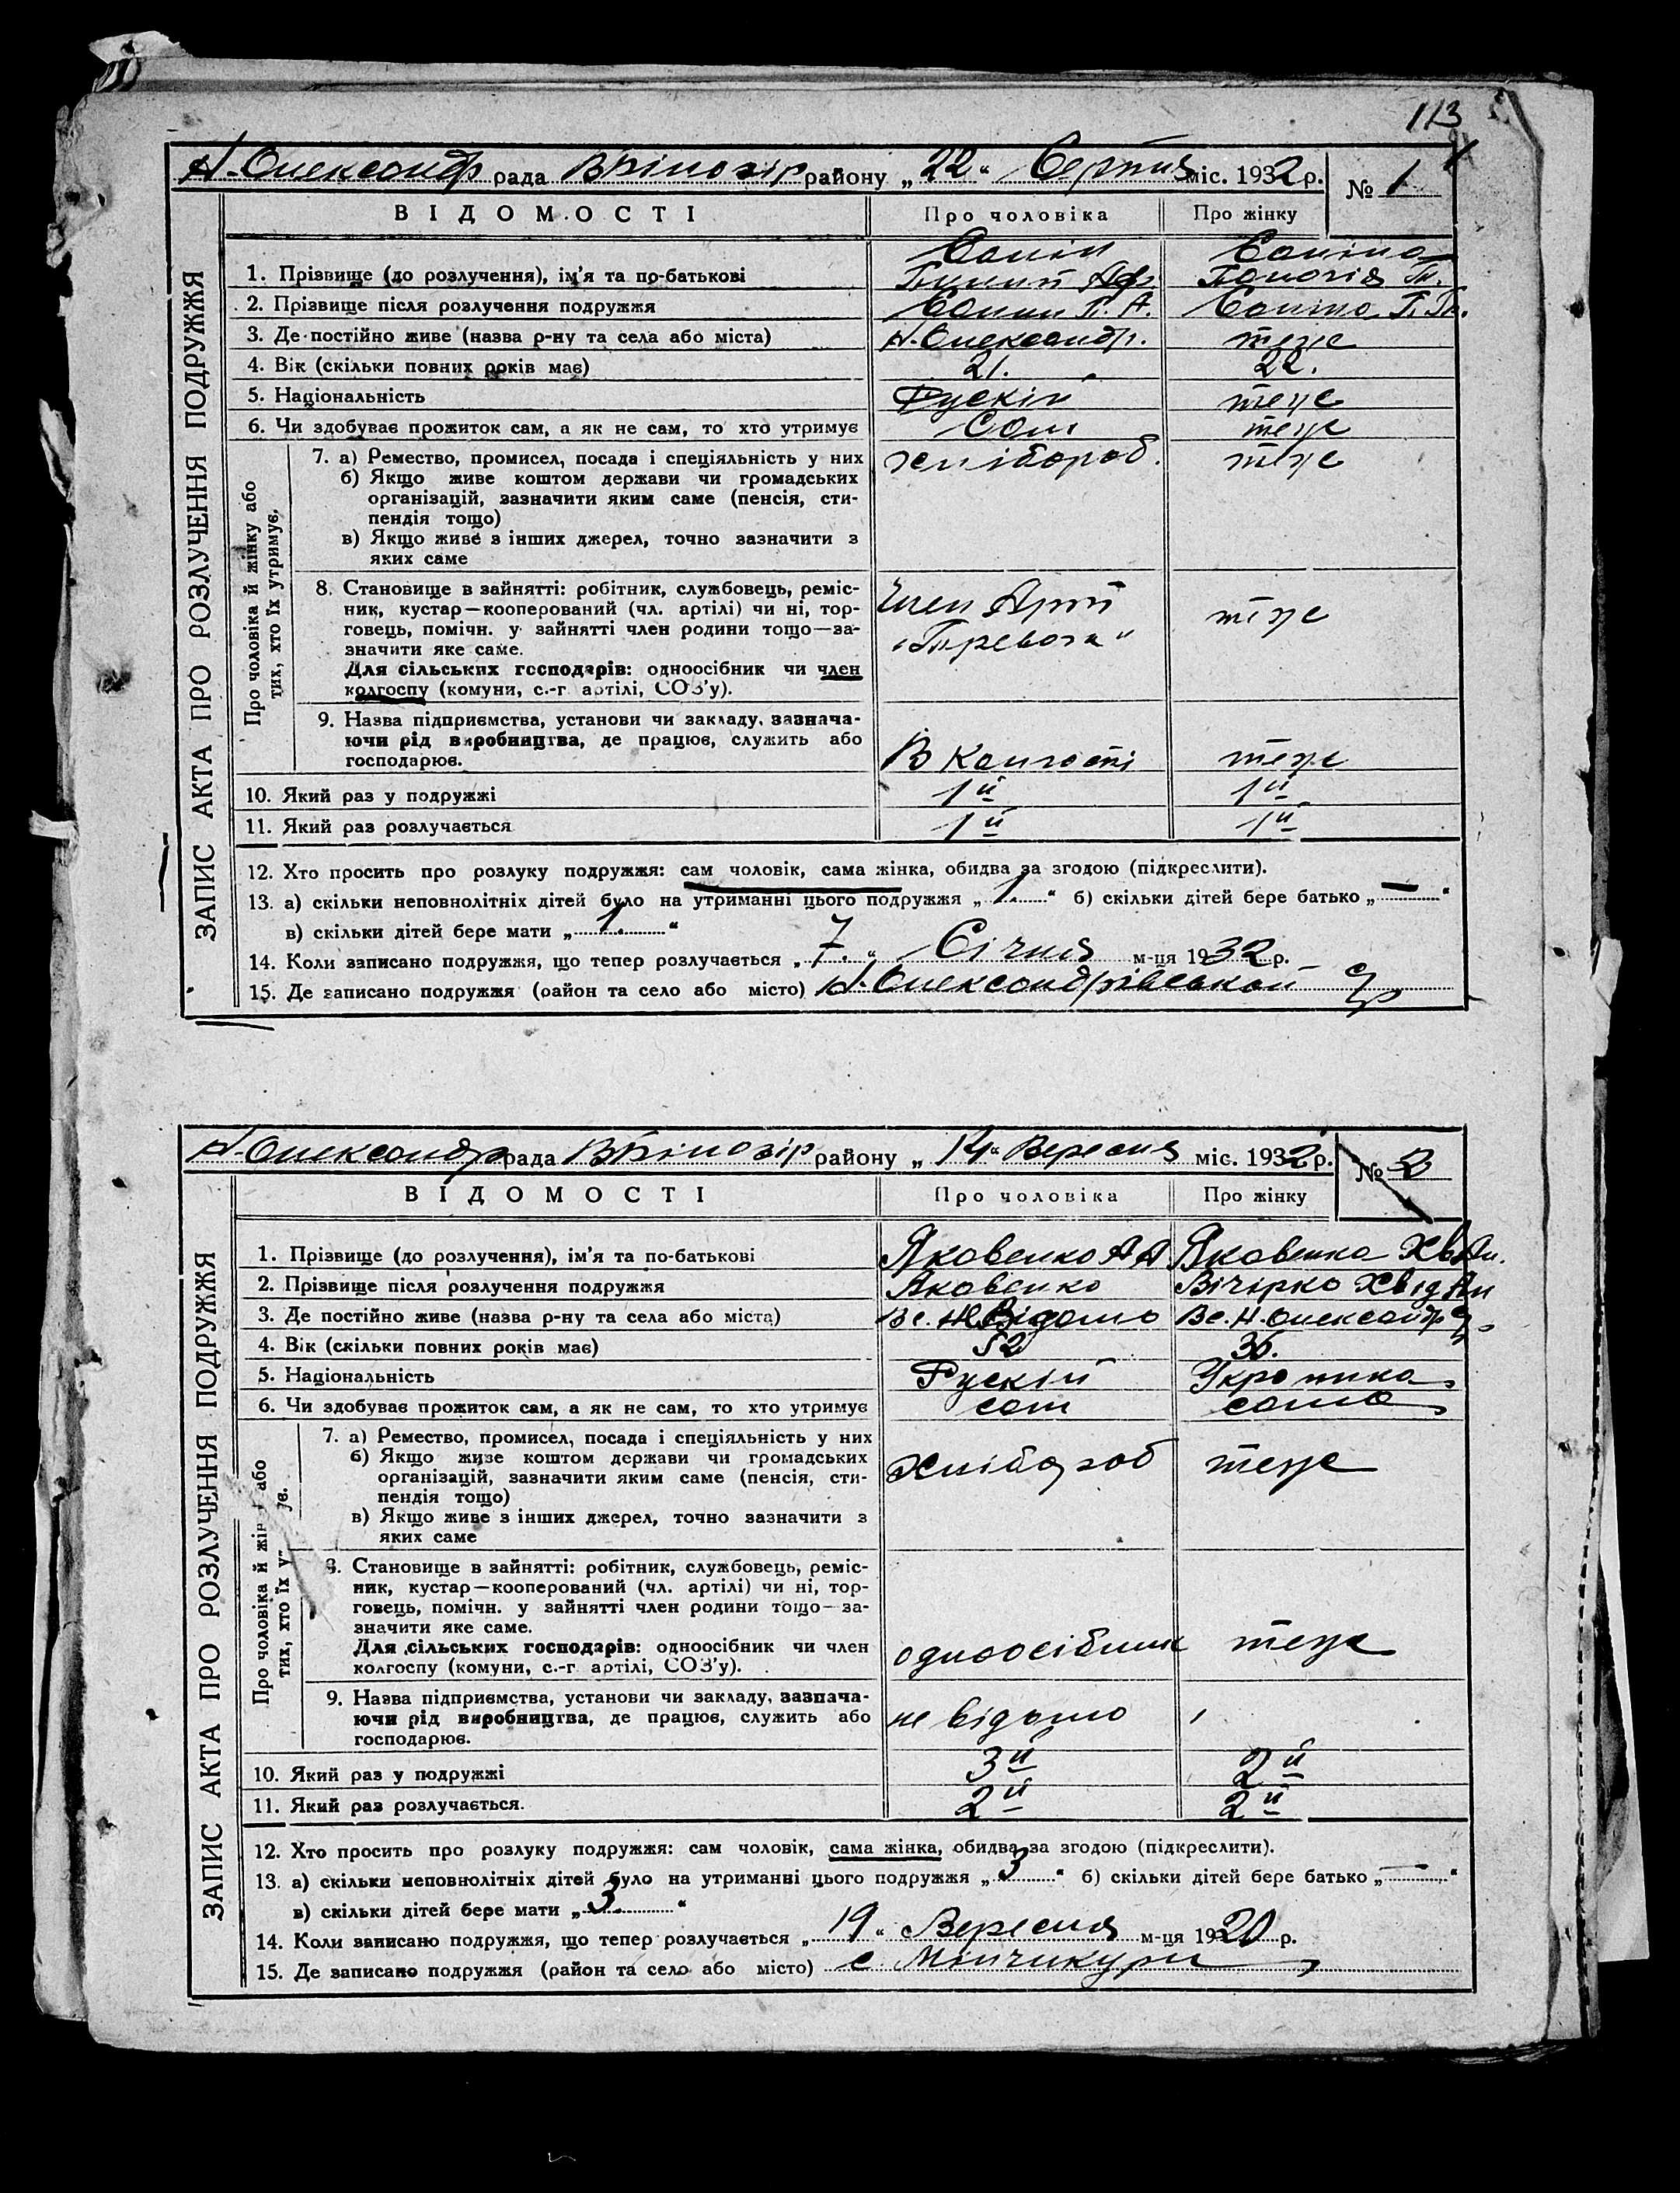 113
Н-Олександр рада ВБілозір району „22“ Серпня міс. 1932 р. № 1
ВІДОМОСТІ Про чоловіка Про жінку
ЗАПИС АКТА ПРО РОЗЛУЧЕННЯ ПОДРУЖЖЯ
1. Прізвище (до розлучення), ім'я та по-батькові
2. Прізвище після розлучення подружжя
3. Де постійно живе (назва р-ну та села або міста) Н-Олександр. теж
4. Вік (скільки повних років має) 21. 22.
5. Національність Рускій теж
6. Чи здобуває прожиток сам, а як не сам, то хто утримує Сам теж
Про чоловіка й жінку або
тих, хто їх утримує.
7. а) Ремество, промисел, посада і спеціяльність у них хлібороб. теж
б) Якщо живе коштом держави чи громадських
організацій, зазначити яким саме (пенсія, сти-
пендія тощо)
в) Якщо живе з інших джерел, точно зазначити з
яких саме
8. Становище в зайнятті: робітник, службовець, реміс-
ник, кустар—кооперований (чл. артілі) чи ні, тор- Член Арт теж
говець, помічн. у зайнятті член родини тощо—за-
значити яке саме.
Для сільських господарів: одноосібник чи член
колгоспу (комуни, с.-г. артілі, СОЗ'у).
9. Назва підприємства, установи чи закладу, зазнача-
ючи рід виробництва, де працює, служить або
господарює. В теж
10. Який раз у подружжі 1й 1й
11. Який раз розлучається 1й 1й
12. Хто просить про розлуку подружжя: сам чоловік, сама жінка, обидва за згодою (підкреслити).
13. а) скільки неповнолітніх дітей було на утриманні цього подружжя „1.“ б) скільки дітей бере батько „—“
в) скільки дітей бере мати „1.“
14. Коли записано подружжя, що тепер розлучається „7.“ Січня м-ця 1932 р.
15. Де записано подружжя (район та село або місто) Н. Олександрівській
Н-Олександр рада ВБілозір району „14“ Вересня міс. 1932 р. № 2
ВІДОМОСТІ Про чоловіка Про жінку
ЗАПИС АКТА ПРО РОЗЛУЧЕННЯ ПОДРУЖЖЯ
1. Прізвище (до розлучення), ім'я та по-батькові Яковенко А А Яковенка
2. Прізвище після розлучення подружжя Яковенко Вічірко
3. Де постійно живе (назва р-ну та села або міста) Вс. Н. Олександр
4. Вік (скільки повних років має) 52 36.
5. Національність Рускій Украинка
6. Чи здобуває прожиток сам, а як не сам, то хто утримує сам сама
Про чоловіка й жін або
тих, хто їх у
7. а) Ремество, промисел, посада і спеціяльність у них
б) Якщо живе коштом держави чи громадських хлібороб теж
організацій, зазначити яким саме (пенсія, сти-
пендія тощо)
в) Якщо живе з інших джерел, точно зазначити з
яких саме
8. Становище в зайнятті: робітник, службовець, реміс-
ник, кустар—кооперований (чл. артілі) чи ні, тор-
говець, помічн. у зайнятті член родини тощо—за-
значити яке саме.
Для сільських господарів: одноосібник чи член одноосібник теж
колгоспу (комуни, с.-г. артілі, СОЗ'у).
9. Назва підприємства, установи чи закладу, зазнача-
ючи рід виробництва, де працює, служить або не відомо
господарює.
10. Який раз у подружжі 3й 2й
11. Який раз розлучається. 2й 2й
12. Хто просить про розлуку подружжя: сам чоловік, сама жінка, обидва за згодою (підкреслити).
13. а) скільки неповнолітніх дітей було на утриманні цього подружжя „3“ б) скільки дітей бере батько „—“
в) скільки дітей бере мати „3.“
14. Коли записано подружжя, що тепер розлучається „19“ Вересня м-ця 1920 р.
15. Де записано подружжя (район та село або місто) с Мінчикури